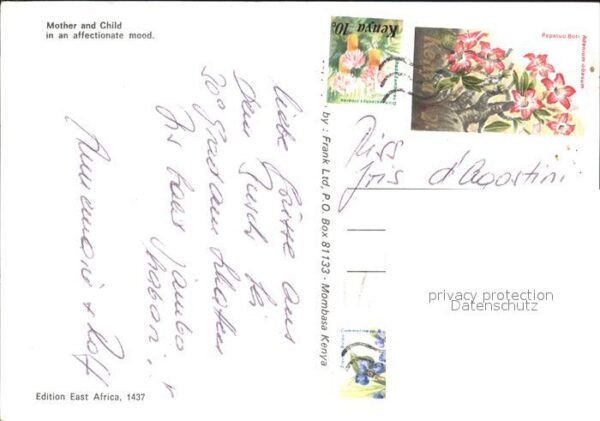 Mother and Child
in an affectionate mood.
liebe Grüsse aus
dem Busch bei
30 Grad am Schatten
Bis bald Jambo
Annemarie + Rolf
Edition East Africa, 1437
by: Frank Ltd, P.O. Box 81133 - Mombasa Kenya
Kenya 10
Papatuo Boti
Adenium obesum
Iris
d'Agostini
privacy protection
Datenschutz